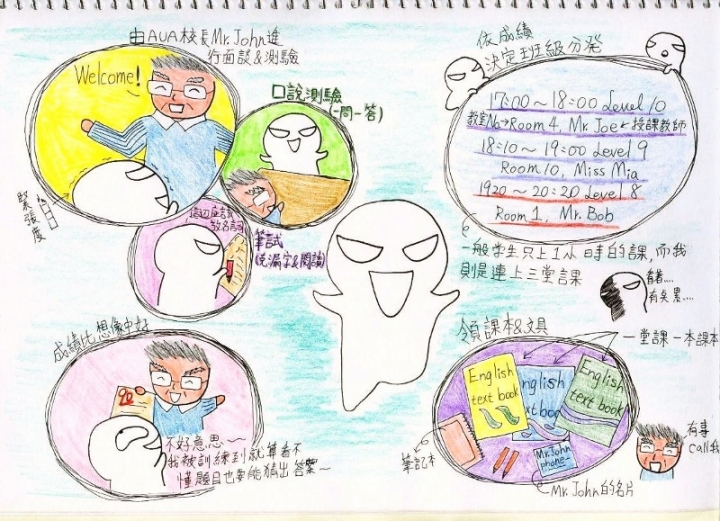 由AUA校長Mr. John進
行面談&測驗
Welcome!
緊張度
口說測驗
(一問一答)
筆試
(克漏字&閱讀)
成績比想像中好
不好意思~
我被訓練到就算看不
懂題目也要能猜出答案~
依成績
決定班級分發
17:00~18:00 Level 10
教室No→Room 4, Mr. Joe←授課教師
18:10~19:00 Level 9
Room 10, Miss Mia
1920~20:20 Level 8
Room 1, Mr. Bob
一般学生只上1小時的課,而我
則是連上三堂課
有點....
有夠累....
領課本&文具
一堂課一本課本
English
text book
English
text book
English
text book
Mr. John
phone~
筆記本
Mr. John的名片
有事
call我